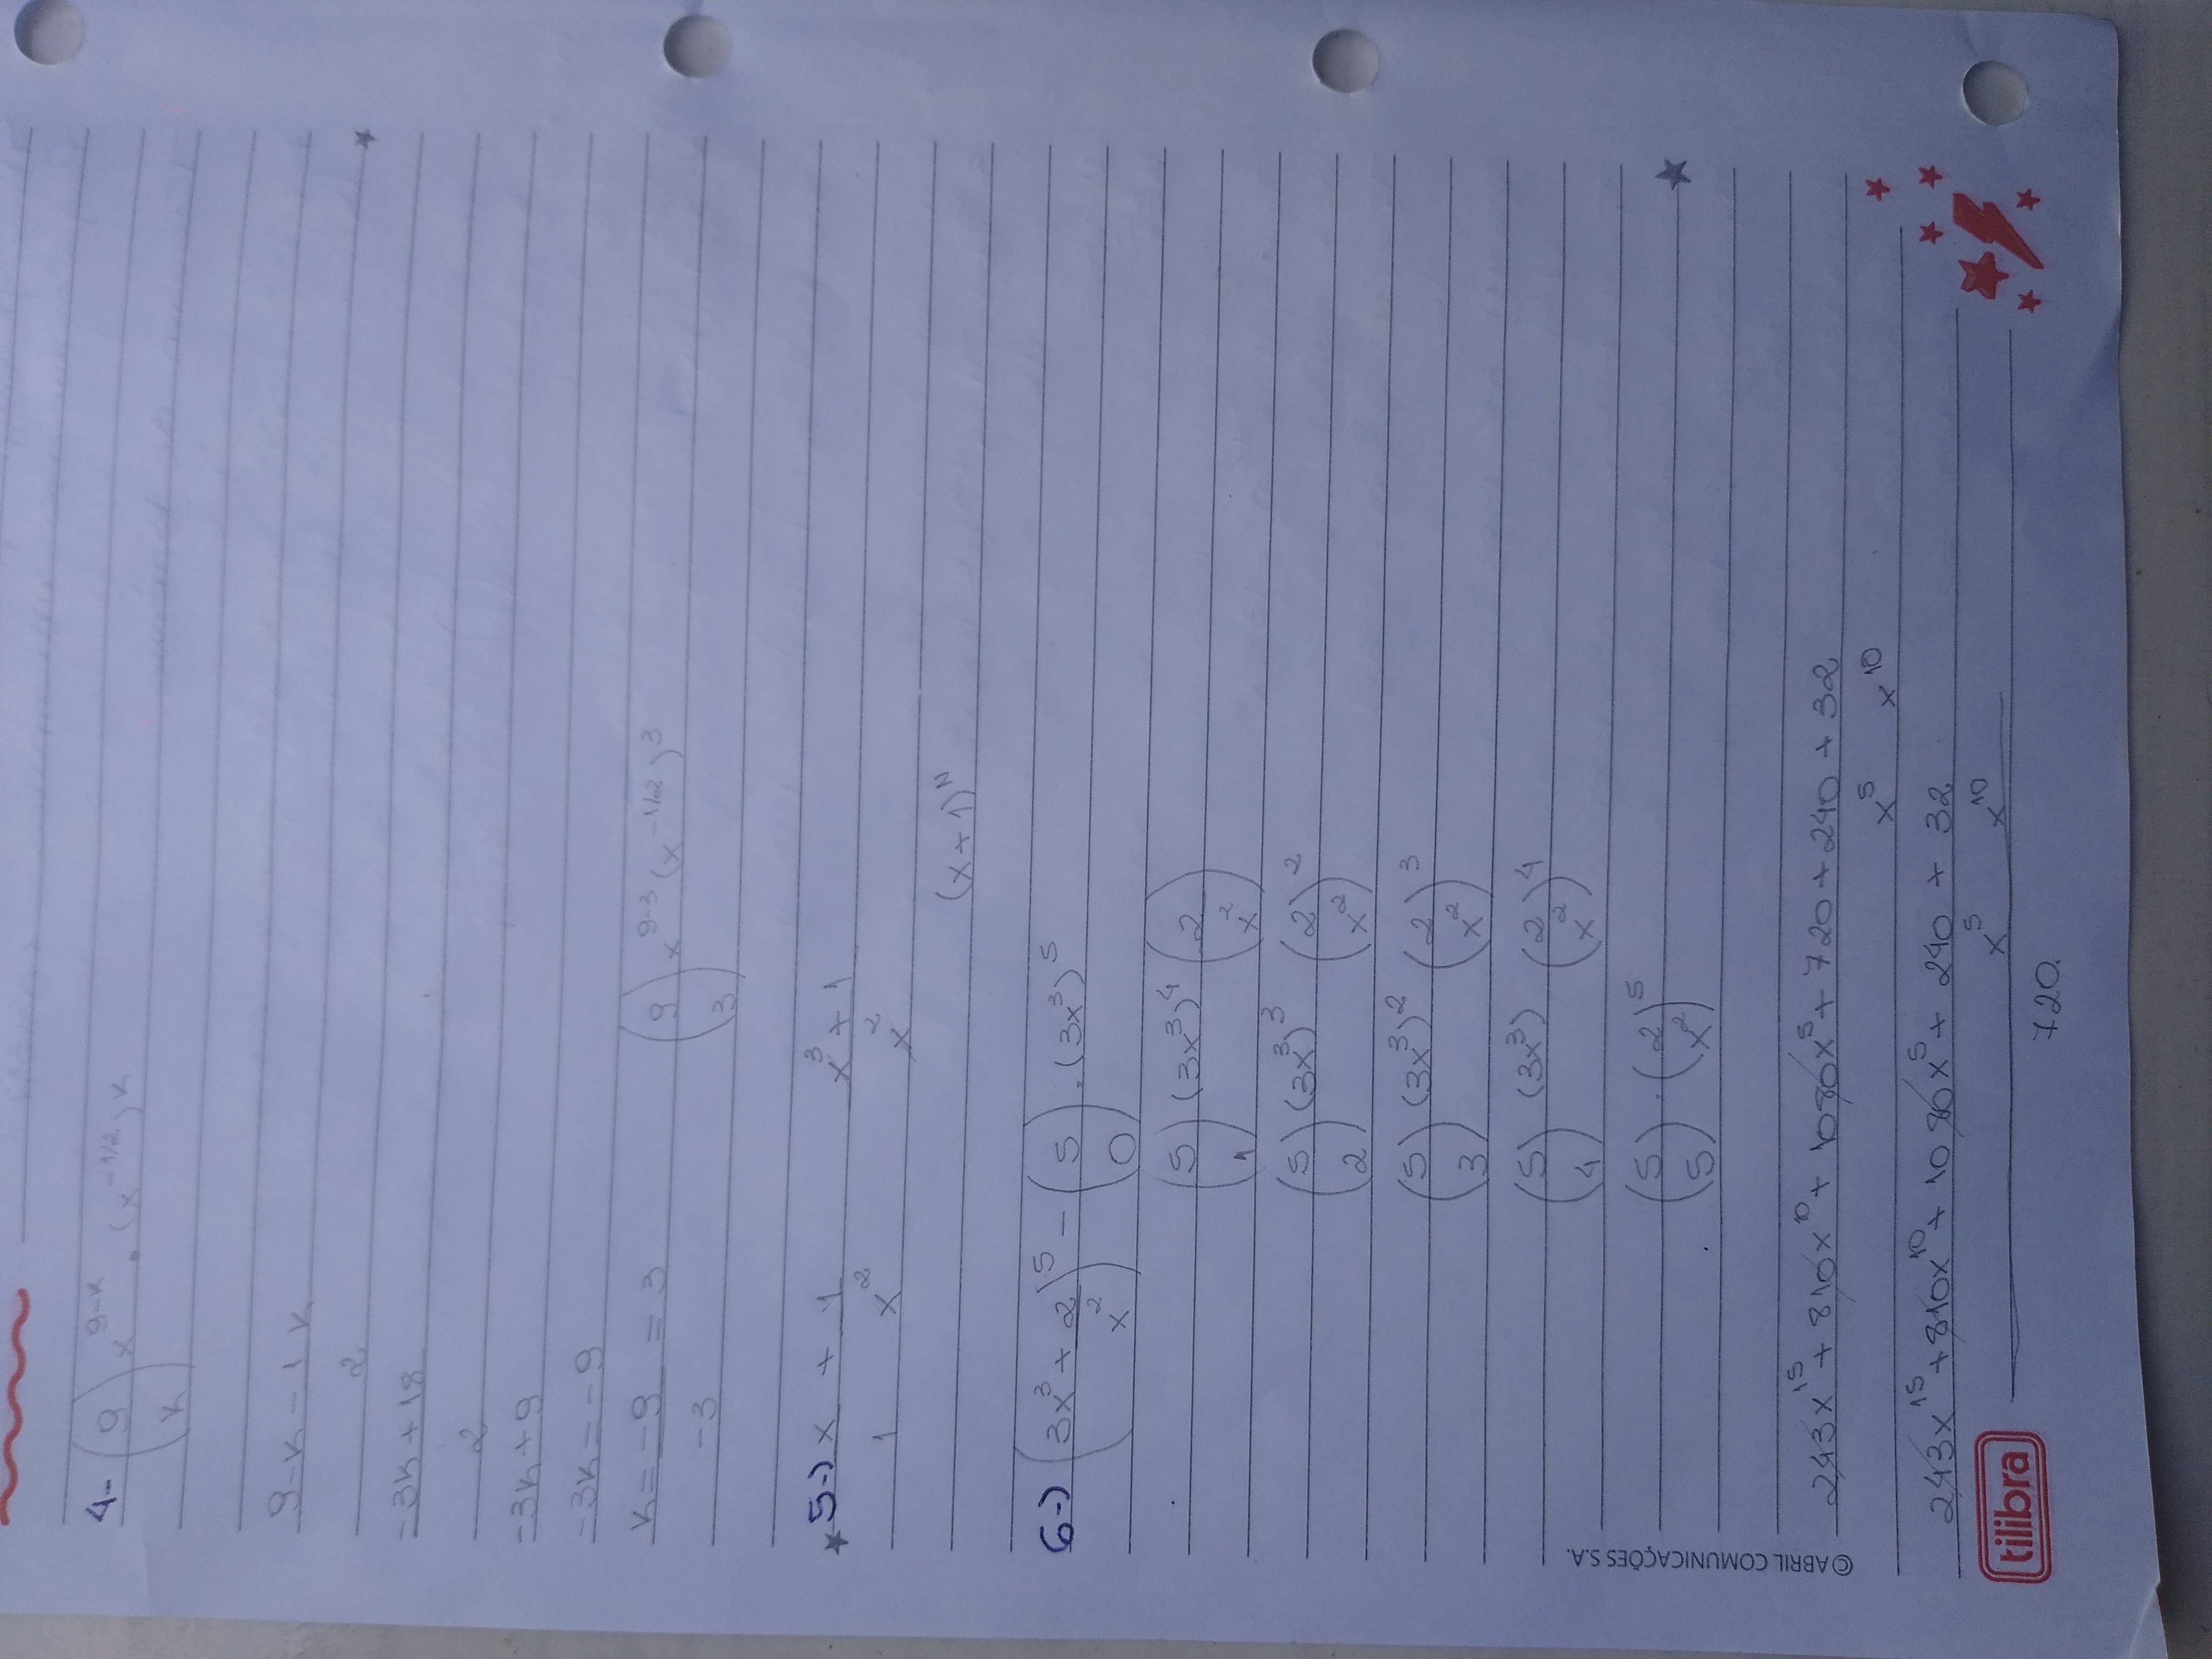 4- (9 k) x^(9-k) . (x^(-1/2))^k
9-k - 1 k
2
-3k + 18
2
-3k + 9
-3k = -9
k = -9 = 3 (9 3) x^(9-3) (x^(-1/2))^3
-3
5-) x + 1 x^3 + 1
1 x^2 x^2
(x + 1)^N
6-) (3x^3 + 2/x^2)^5 - (5 0) . (3x^3)^5
(5 1) (3x^3)^4 (2/x^2)
(5 2) (3x^3)^3 (2/x^2)^2
(5 3) (3x^3)^2 (2/x^2)^3
(5 4) (3x^3) (2/x^2)^4
(5 5) . (2/x^2)^5
243x^15 + 810x^10 + 1080x^5 + 720 + 240 + 32
x^5 x^10
243x^15 + 810x^10 + 1080x^5 + 240 + 32
x^5 x^10
720.
©ABRIL COMUNICAÇÕES S.A.
tilibra